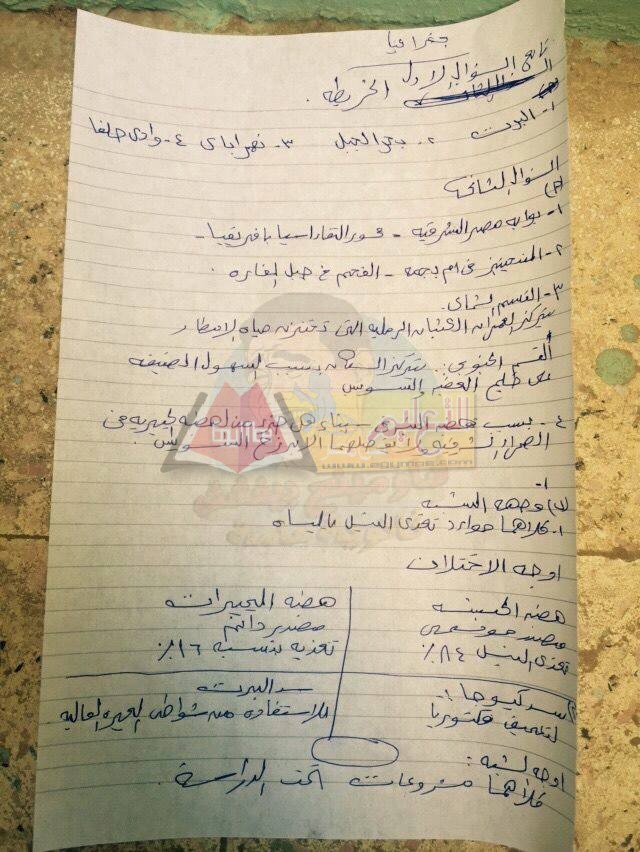 جغرافيا
تابع السؤال الاول الخريطه.
١- البرت ٢- بحر الجبل ٣- نهر اباى ٤- وادى حلفا
السؤال الثانى
(أ)
١- بوابه مصر الشرقيه - محور التقاء اسيا بافريقيا -
٢- المنجنيز فى ام بجمه - الفحم فى جبل المغاره.
٣- القسم الشمالى
يتركز العمران الكثبان الرمليه التى تختزن مياه الامطار
القسم الجنوبى.. يتركز بسبب السهول الضيقه
على خليج العقبه والسويس
٤- بسبب هضبه جزء من الهضبه الجيريه فى
الصحراء الشرقيه السويس
(ب) وجه الشبه ١-
١- كلاهما موارد تغذى النيل بالمياه
اوجه الاختلاف
هضبه الحبشه
هضبه البحيرات
مصدر موسمى
مصدر دائم
تغذى النيل ٨٤٪
تغذيه بنسبه ١٦٪
٢) سد كيوجا:
سد البرت
لتصريف فكتوريا
للاستفاده من شواطئ البحيره العاليه
اوجه الشبه:
كلاهما مشروعات تحت الدراسة.
التعليم
www.